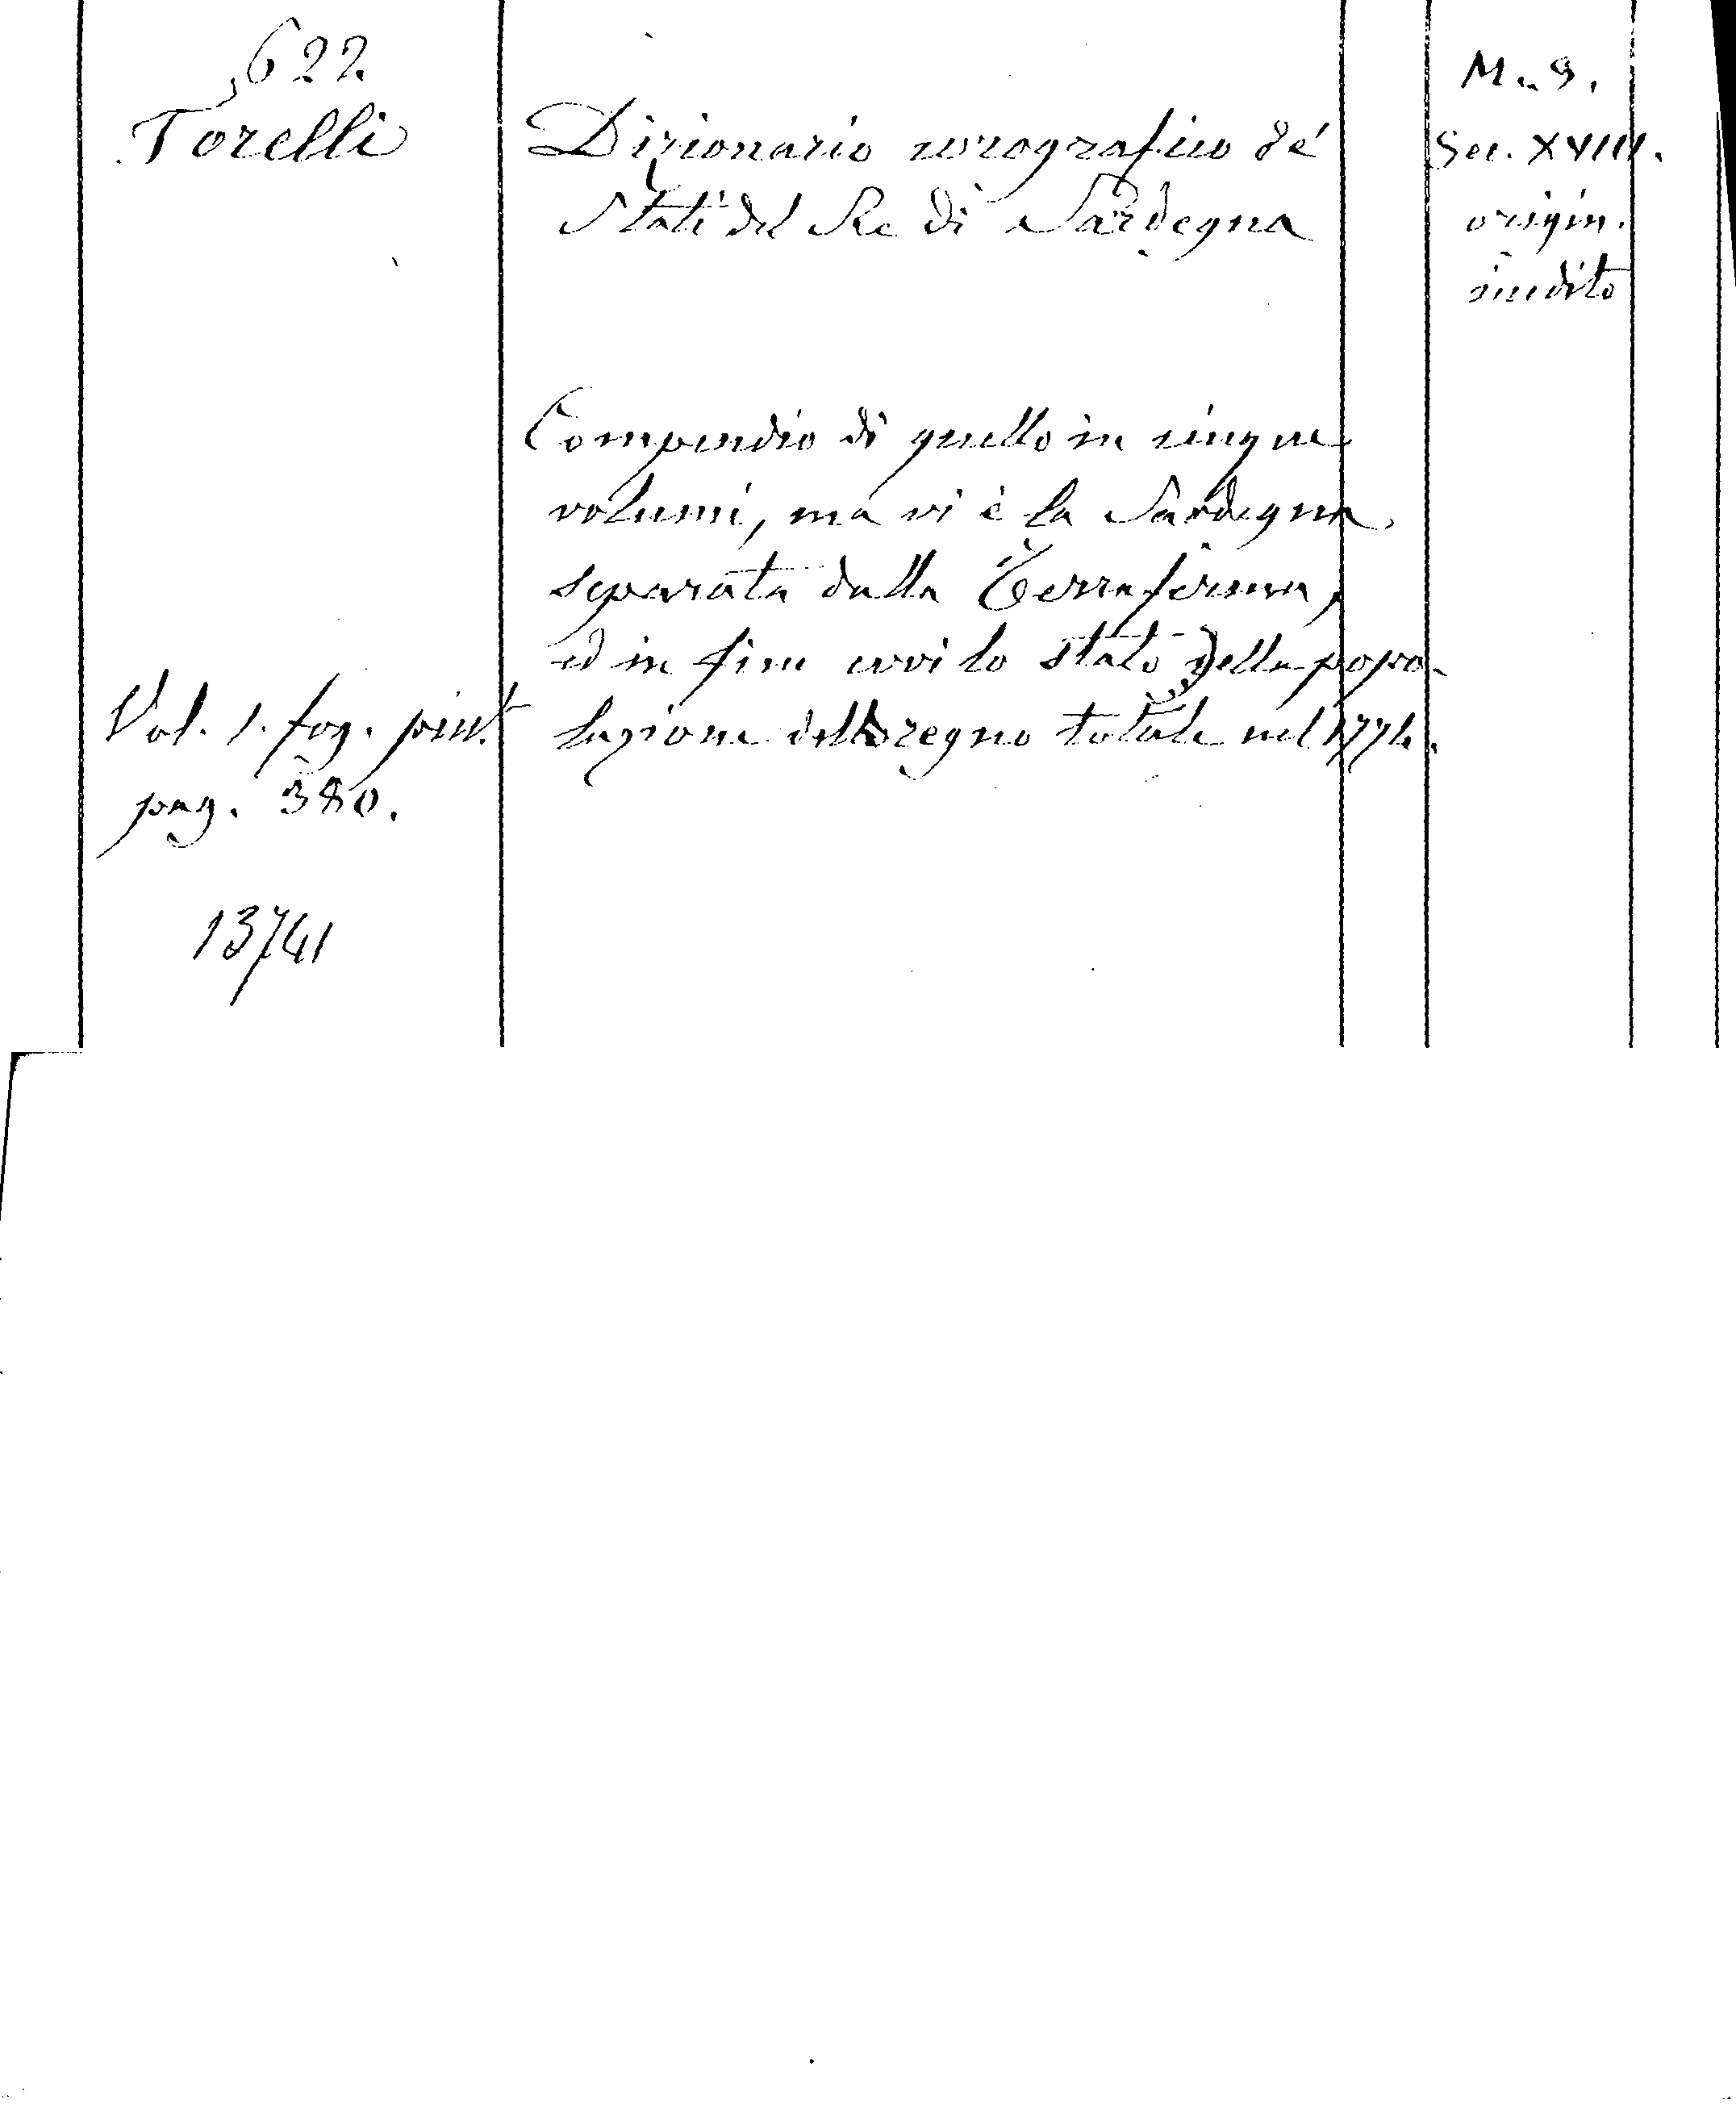 622
Torelli
Dizionario corografico de'
Stati del Re di Sardegna
M. 9.
Sec. XVIII.
origin.
inedito
Compendio di quello in cinque
volumi, ma vi è la Sardegna
separata dalla Terraferma,
ed in fine evvi lo stato della popo-
lazione dello regno totale nel 1774.
Vol. 1. fog. picc.
pag. 380.
13741